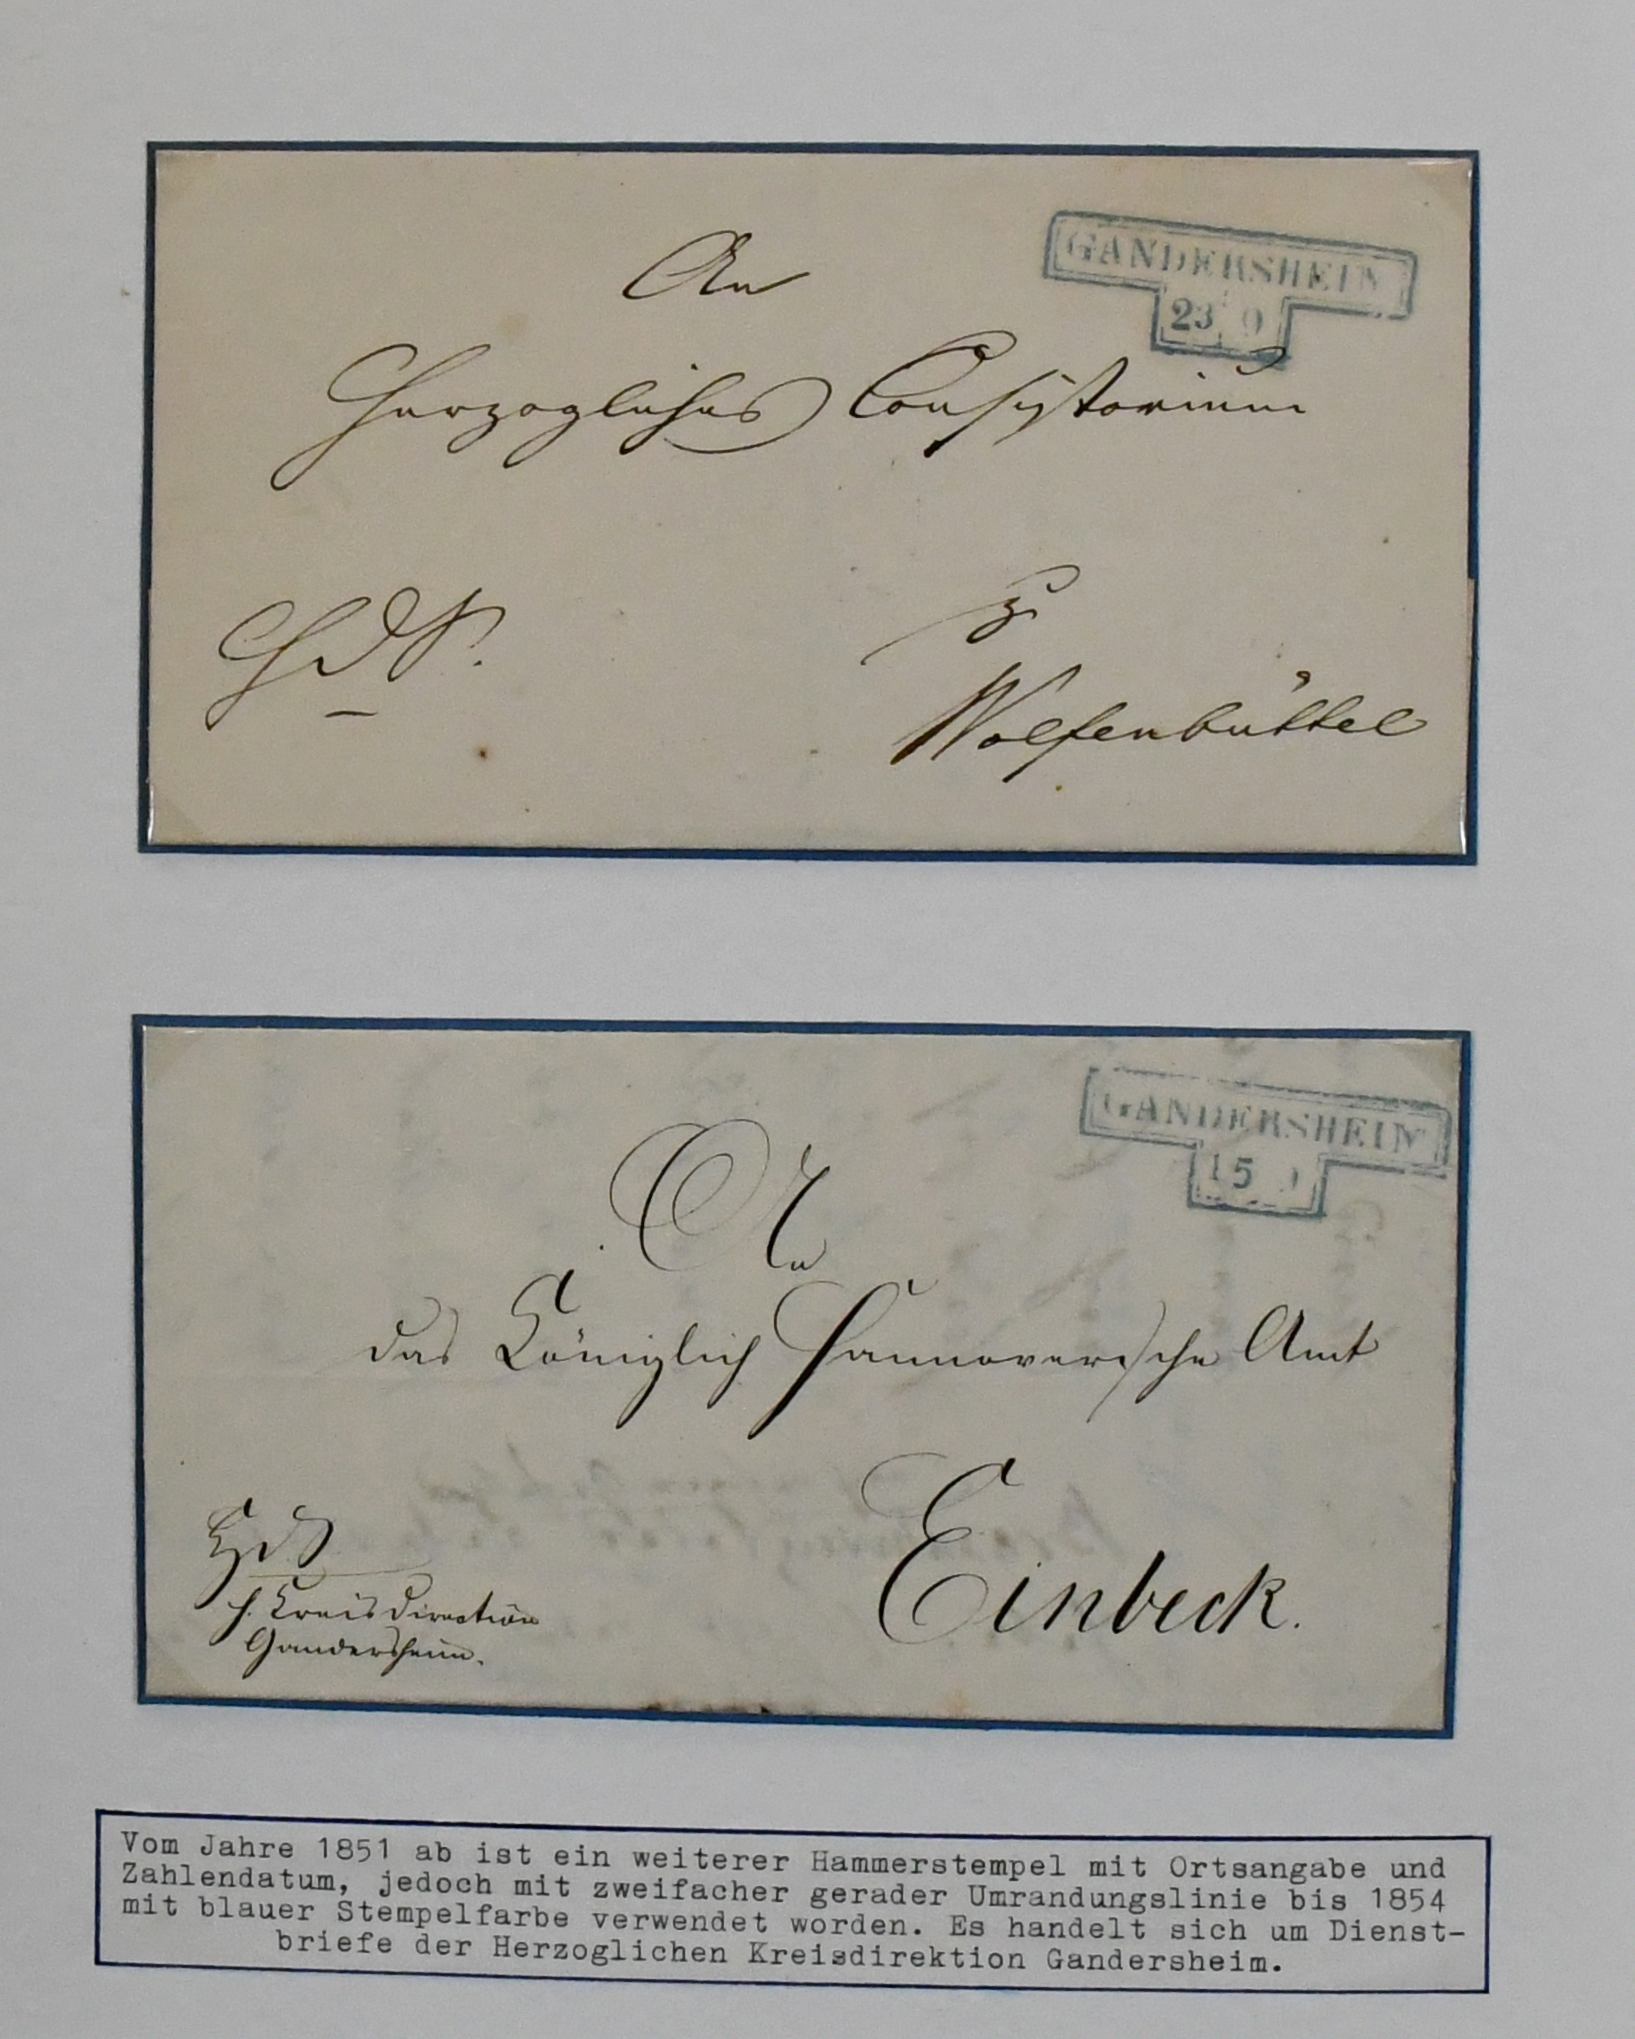 GANDERSHEIM
23 9
An
Herzogliches Consistorium
HdS.
zu
Wolfenbüttel
GANDERSHEIM
15
An
das Königlich Hannoversche Amt
HdS
H. Kreisdirection
Gandersheim.
Einbeck.
Vom Jahre 1851 ab ist ein weiterer Hammerstempel mit Ortsangabe und
Zahlendatum, jedoch mit zweifacher gerader Umrandungslinie bis 1854
mit blauer Stempelfarbe verwendet worden. Es handelt sich um Dienst-
briefe der Herzoglichen Kreisdirektion Gandersheim.